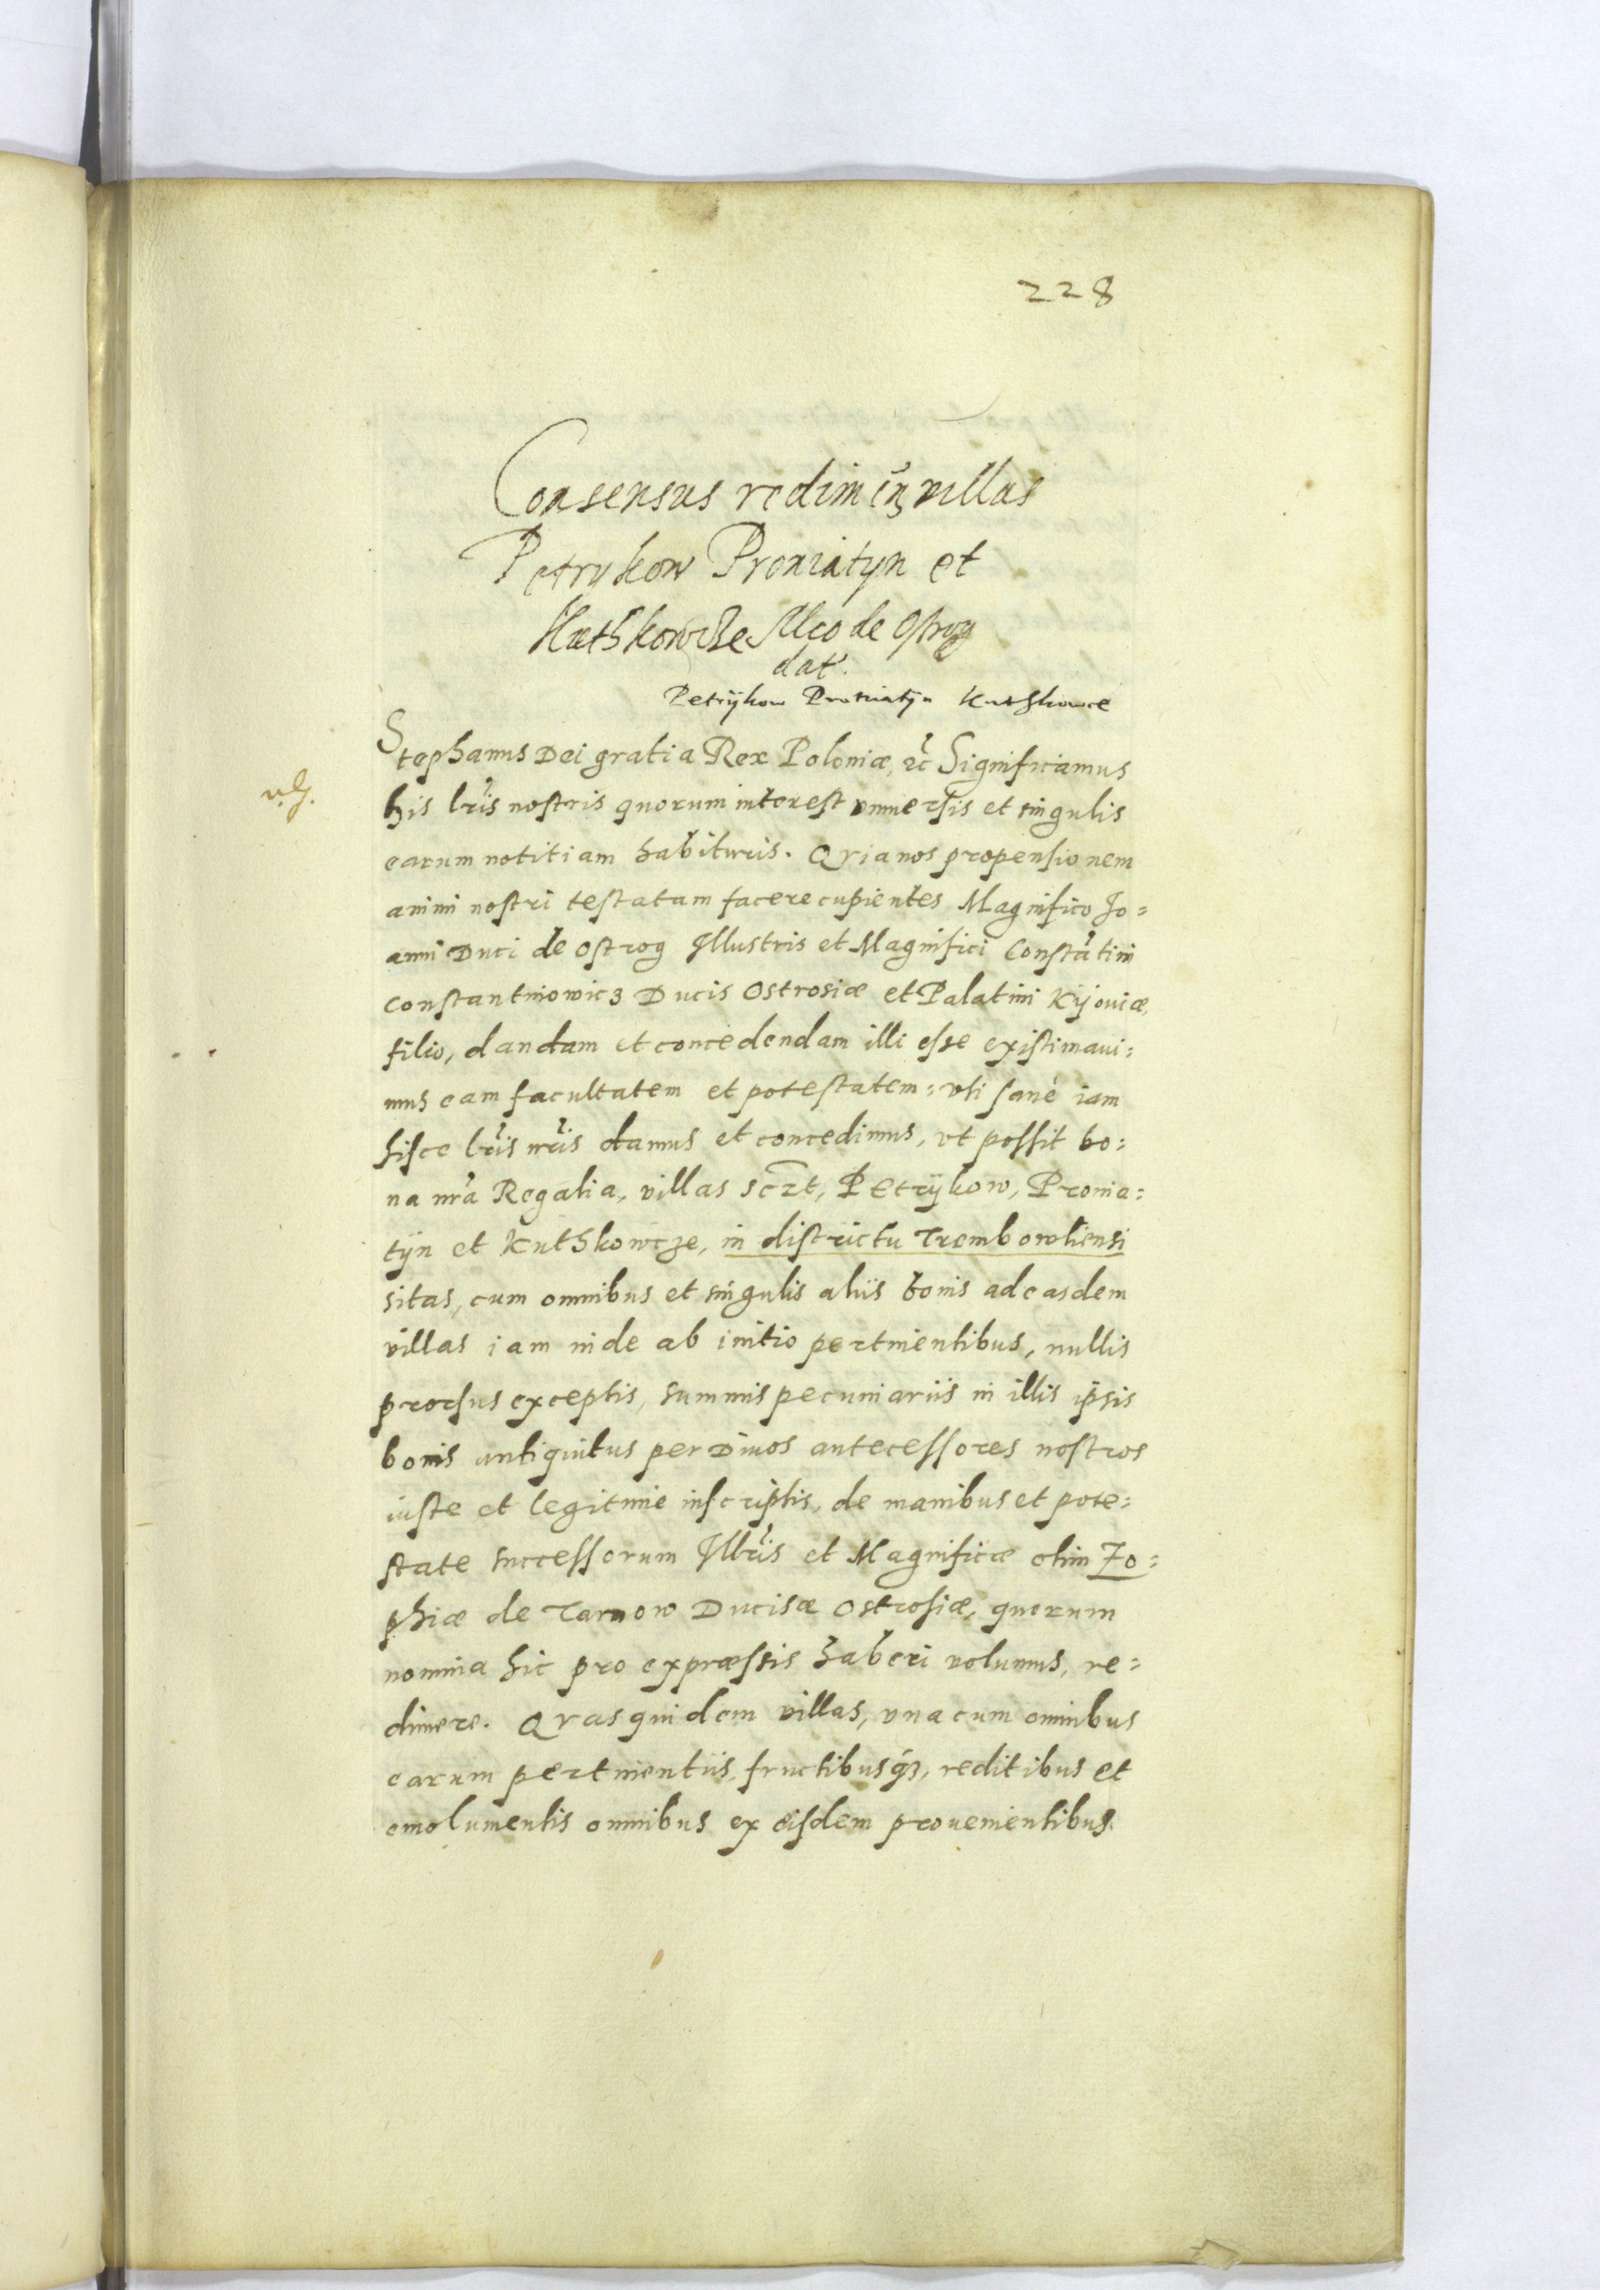 228
Consensus redimen villas
Petrykow Proniatyn et
Kuthkowcze Mco de Ostrog
dat.
Petrÿkow Proniatÿn Kuthkowce
Stephanus Dei gratia Rex Poloniæ, &c Significamus
his lris nostris quorum interest vniuersis et singulis
earum notitiam habituris. Qvia nos propensionem
animi nostri testatam facere cupientes Magnifico Jo=
anni Duci de Ostrog Illustris et Magnifici Constãtini
Constantinowicz Ducis Ostrosiæ et Palatini Kijouiæ
filio, dandam et concedendam illi esse existimaui=
mus eam facultatem et potestatem: vti sanè iam
hisce lris nris damus et concedimus, vt possit bo=
na nra Regalia, villas sczt, Petrÿkow, Pronia=
tÿn et Kuthkowcze, in districtu Trembowliensi
sitas, cum omnibus et singulis aliis bonis ad easdem
villas iam inde ab initio pertinentibus, nullis
prorsus exceptis, summis pecuniariis in illis ipsis
bonis antiquitus per Diuos antecessores nostros
iuste et legitime inscriptis, de manibus et pote=
state successorum Illris et Magnificæ olim Zo=
phiæ de Tarnow Ducisæ Ostrosiæ, quorum
nomina hic pro expræssis haberi volumus, re=
dimere. Qvas quidem villas, vna cum omnibus
earum pertinentiis, fructibusq3, reditibus et
emolumentis omnibus ex eisdem prouenientibus